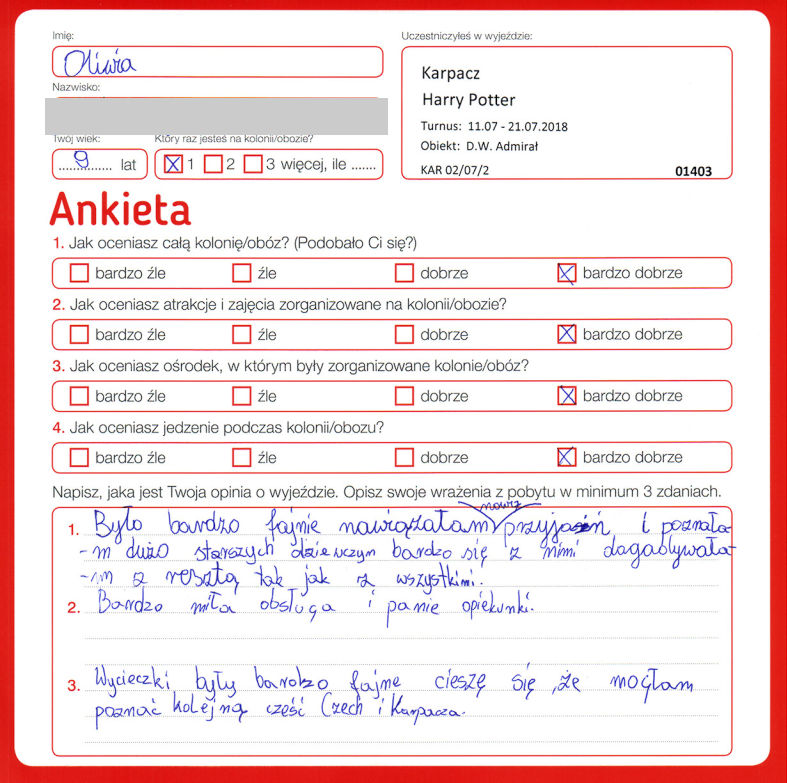 Imię:
Oliwia
Nazwisko:
Twój wiek:
9 lat
Który raz jesteś na kolonii/obozie?
1 2 3 więcej, ile .......
Uczestniczyłeś w wyjeździe:
Karpacz
Harry Potter
Turnus: 11.07 - 21.07.2018
Obiekt: D.W. Admirał
KAR 02/07/2 01403
Ankieta
1. Jak oceniasz całą kolonię/obóz? (Podobało Ci się?)
bardzo źle źle dobrze bardzo dobrze
2. Jak oceniasz atrakcje i zajęcia zorganizowane na kolonii/obozie?
bardzo źle źle dobrze bardzo dobrze
3. Jak oceniasz ośrodek, w którym były zorganizowane kolonie/obóz?
bardzo źle źle dobrze bardzo dobrze
4. Jak oceniasz jedzenie podczas kolonii/obozu?
bardzo źle źle dobrze bardzo dobrze
Napisz, jaka jest Twoja opinia o wyjeździe. Opisz swoje wrażenia z pobytu w minimum 3 zdaniach.
1. Było bardzo fajnie nawiązałam przyjaźń, i poznała-
-m dużo starszych dziewczyn bardzo się z nimi dagadywała-
-m z resztą tak jak z wszystkimi.
2. Bardzo miła obsługa i panie opiekunki.
3. Wycieczki były bardzo fajne cieszę się ,że mogłam
poznać kolejną część Czech i Karpacza.